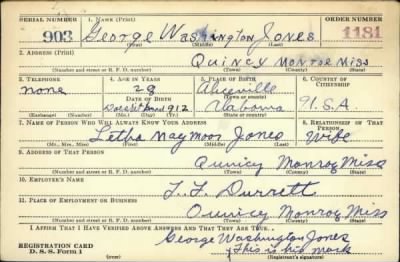 SERIAL NUMBER 1. NAME (Print) ORDER NUMBER
903 George Washington Jones 1181
(First) (Middle) (Last)
2. ADDRESS (Print)
Quincy Monroe Miss
(Number and street or R. F. D. number) (Town) (County) (State)
3. TELEPHONE 4. AGE IN YEARS 5. PLACE OF BIRTH 6. COUNTRY OF CITIZENSHIP
none 28 Aliceville U.S.A
DATE OF BIRTH (Town or county)
1912 Alabama
(Exchange) (Number) (Mo.) (Day) (Yr.) (State or country)
7. NAME OF PERSON WHO WILL ALWAYS KNOW YOUR ADDRESS 8. RELATIONSHIP OF THAT PERSON
Letha Jones Wife
(Mr., Mrs., Miss) (First) (Middle) (Last)
9. ADDRESS OF THAT PERSON
Quincy Monroe Miss
(Number and street or R. F. D. number) (Town) (County) (State)
10. EMPLOYER'S NAME
Durrett
11. PLACE OF EMPLOYMENT OR BUSINESS
Quincy Monroe Miss
(Number and street or R. F. D. number) (Town) (County) (State)
I AFFIRM THAT I HAVE VERIFIED ABOVE ANSWERS AND THAT THEY ARE TRUE.
George Washington Jones
REGISTRATION CARD This is his mark
D. S. S. Form 1 (Registrant's signature)